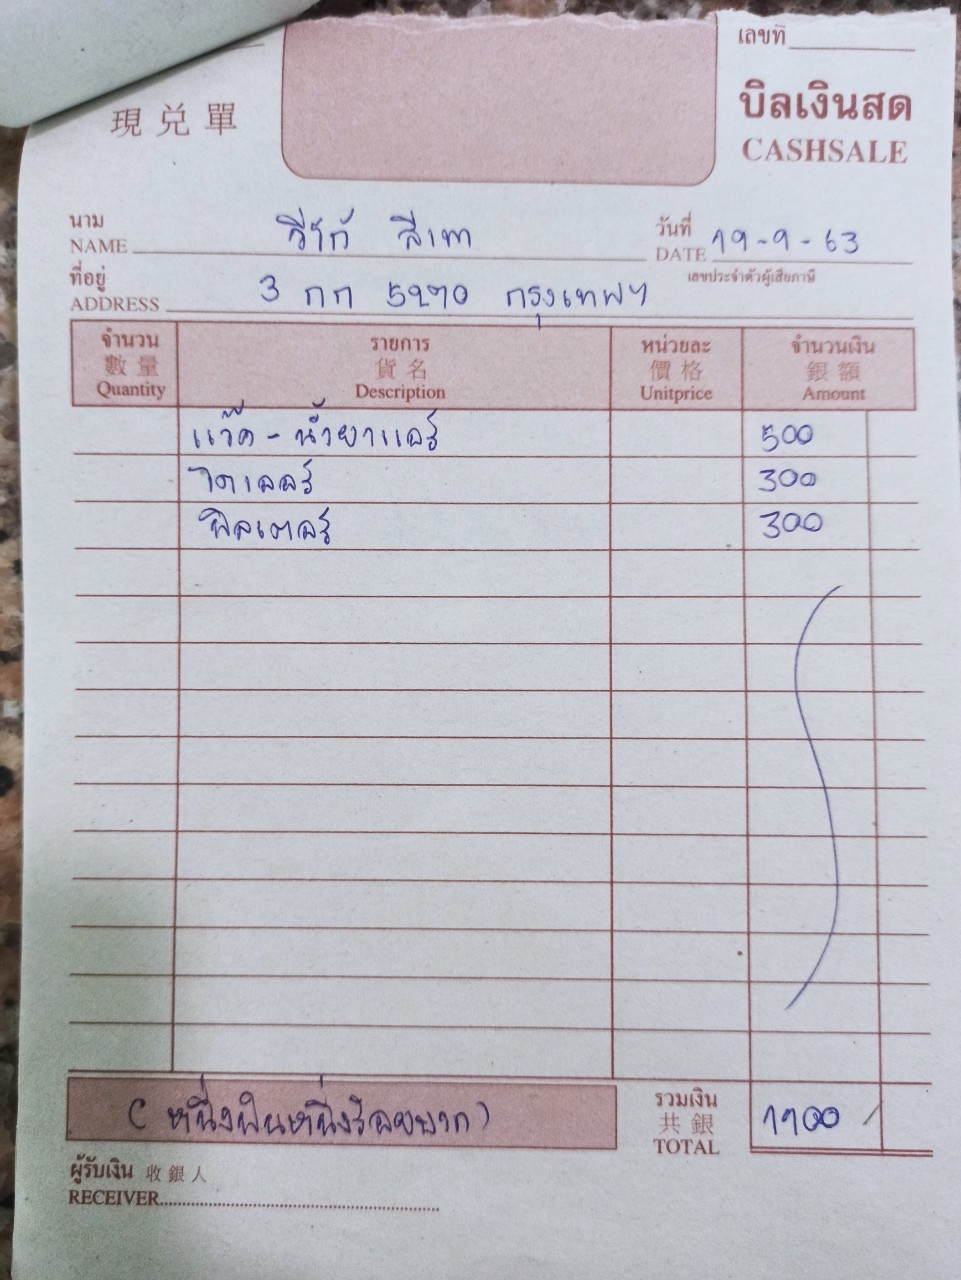 เลขที่
現兑單
บิลเงินสด
CASHSALE
นาม
NAME
สีเทา
วันที่
DATE 19-9-63
ที่อยู่
ADDRESS 3 กก 5270 กรุงเทพฯ
เลขประจำตัวผู้เสียภาษี
จำนวน รายการ หน่วยละ จำนวนเงิน
數量 貨名 價格 銀額
Quantity Description Unitprice Amount
แว๊ค - น้ำยาแอร์ 500
ไดเออร์ 300
ฟิลเตอร์ 300
(หนึ่งพันหนึ่งร้อยบาท)
รวมเงิน
共銀
TOTAL
1100
ผู้รับเงิน 收銀人
RECEIVER